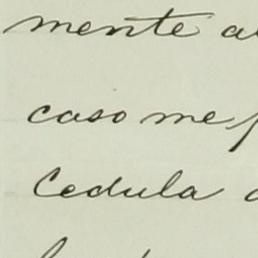 mente a
caso me
Cedula